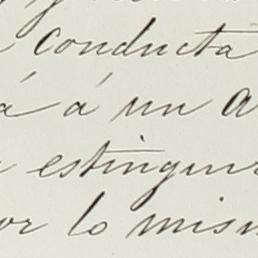 conducta
á á un a
estingui
or lo mism